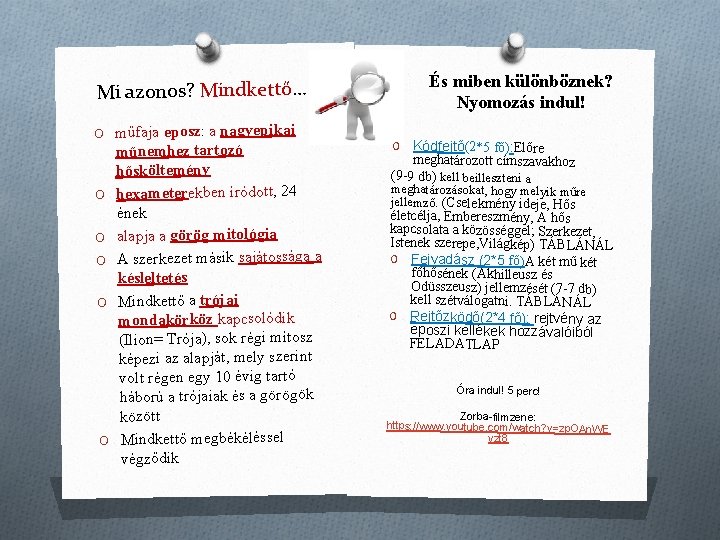 Mi azonos? Mindkettő…
O műfaja eposz: a nagyepikai
műnemhez tartozó
hősköltemény
O hexameterekben íródott, 24
ének
O alapja a görög mitológia
O A szerkezet másik sajátossága a
késleltetés
O Mindkettő a trójai
mondakörköz kapcsolódik
(Ilion= Trója), sok régi mítosz
képezi az alapját, mely szerint
volt régen egy 10 évig tartó
háború a trójaiak és a görögök
között
O Mindkettő megbékéléssel
végződik
És miben különböznek?
Nyomozás indul!
O Kódfejtő(2*5 fő):Előre
meghatározott címszavakhoz
(9-9 db) kell beilleszteni a
meghatározásokat, hogy melyik műre
jellemző. (Cselekmény ideje, Hős
életcélja, Embereszmény, A hős
kapcsolata a közösséggel; Szerkezet,
Istenek szerepe,Világkép) TÁBLÁNÁL
O Fejvadász (2*5 fő)A két mű két
főhősének (Akhilleusz és
Odüsszeusz) jellemzését (7-7 db)
kell szétválogatni. TÁBLÁNÁL
O Rejtőzködő(2*4 fő): rejtvény az
eposzi kellékek hozzávalóiból
FELADATLAP
Óra indul! 5 perc!
Zorba-filmzene:
https://www.youtube.com/watch?v=zpOAnVVE
yzt8